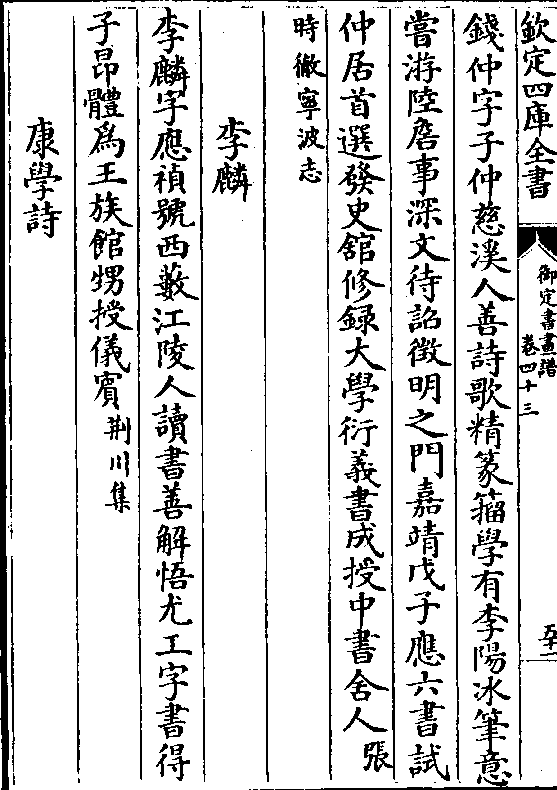 欽定四庫全書
御定書畫譜
卷四十三
錢仲字子仲慈溪人善詩歌精篆籀學有李陽冰筆意
嘗游陸詹事深文待詔徵明之門嘉靖戊子應六書試
仲居首選發史舘修録大學衍義書成授中書舍人張
時徹寧波志
李麟
李麟字應禎號西藪江陵人讀書善解悟尤工字書得
子昂體爲王族館甥授儀賓荆川集
康學詩